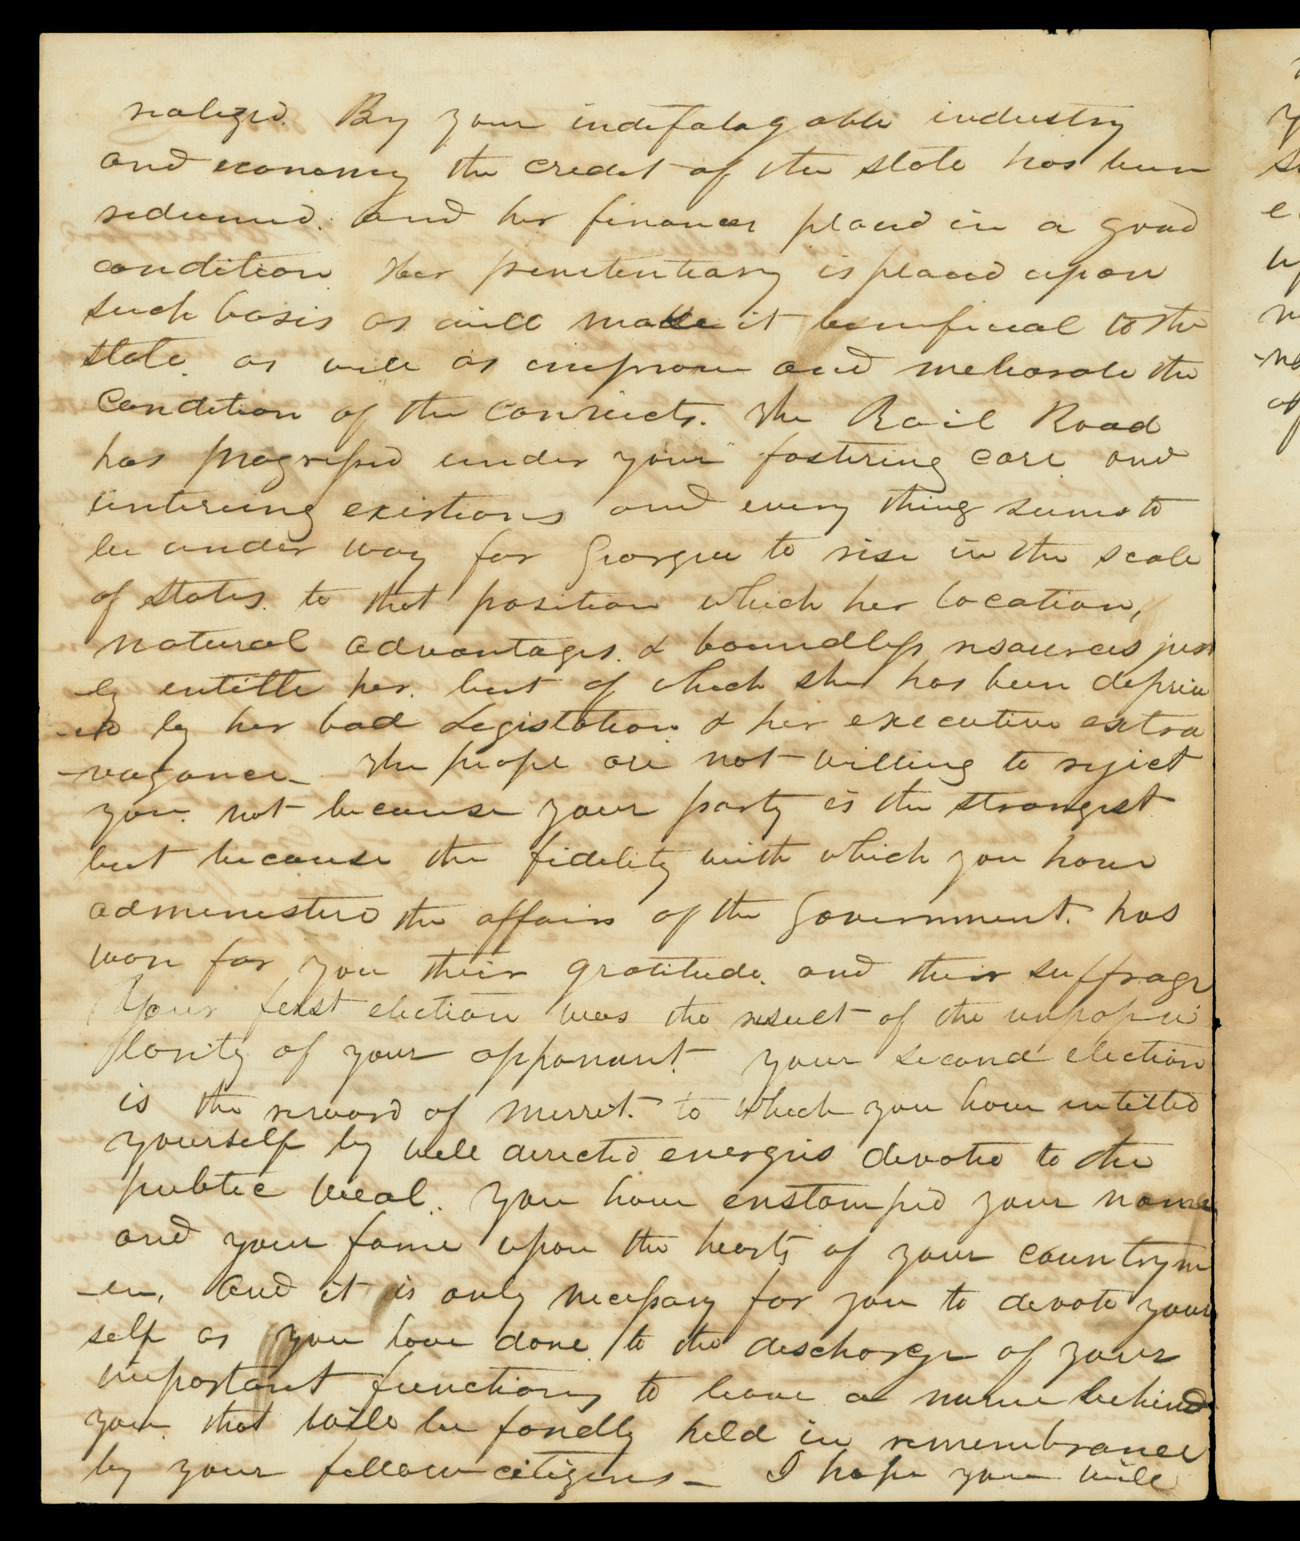 realized. By your indefatagable industry
and economy the credit of the state has been
redeemed. and her finances placed in a good
condition Her penetentiary is placed upon
such basis as will make it beneficial to the
state. as well as improve and meliorate the
Condition of the convicts. The Rail Road
has progressed under your fostering care and
untireing exertions and every thing seems to
be under way for Georgia to rise in the scale
of States. to that position which her location,
natural advantages. & boundless resources just
-ly entitle her. but of which she has been depriv
-ed by her bad Legislation & her executive extra
-vagance - The people are not willing to reject
you. not because your party is the strongest
but because the fidelity with which you have
administered the affairs of the Government. has
won for you their gratitude. and their suffrage
Your first election was the result of the unpopu
larity of your opponant. your second election
is the reward of merret. to which you have entitled
yourself by well directed energies devoted to the
public weal. You have enstamped your name
and your fame upon the hearts of your countrym
-en. and it is only necessary for you to devote your
self as you have done. to the discharge of your
important functions to leave a name behind
you. that will be fondly held in remembrance
by your fellow citizens - I hope you will